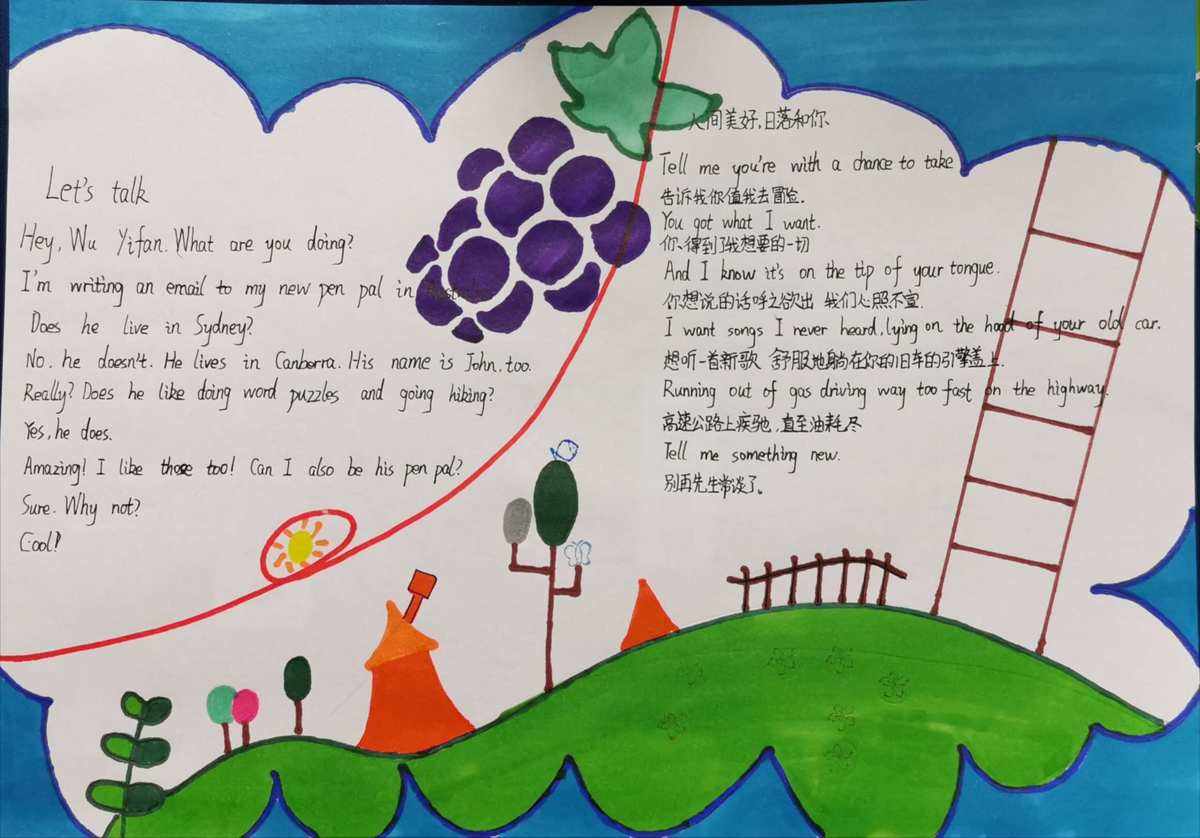 Let's talk
Hey, Wu Yifan. What are you doing?
I'm writing an email to my new pen pal in Australia
Does he live in Sydney?
No. he doesn't. He lives in Canberra. His name is John, too.
Really? Does he like doing word puzzles and going hiking?
Yes, he does.
Amazing! I like those too! Can I also be his pen pal?
Sure. Why not?
Cool!
人间美好,日落和你
Tell me you're with a chance to take
告诉我你值我去冒险.
You got what I want.
你得到了我想要的一切
And I know it's on the tip of your tongue.
你想说的话呼之欲出 我们心照不宣.
I want songs I never heard, lying on the hood of your old car.
想听一首新歌 舒服地躺在你的旧车的引擎盖上.
Running out of gas driving way too fast on the highway.
高速公路上疾驰,直至油耗尽
Tell me something new.
别再先生常谈了。